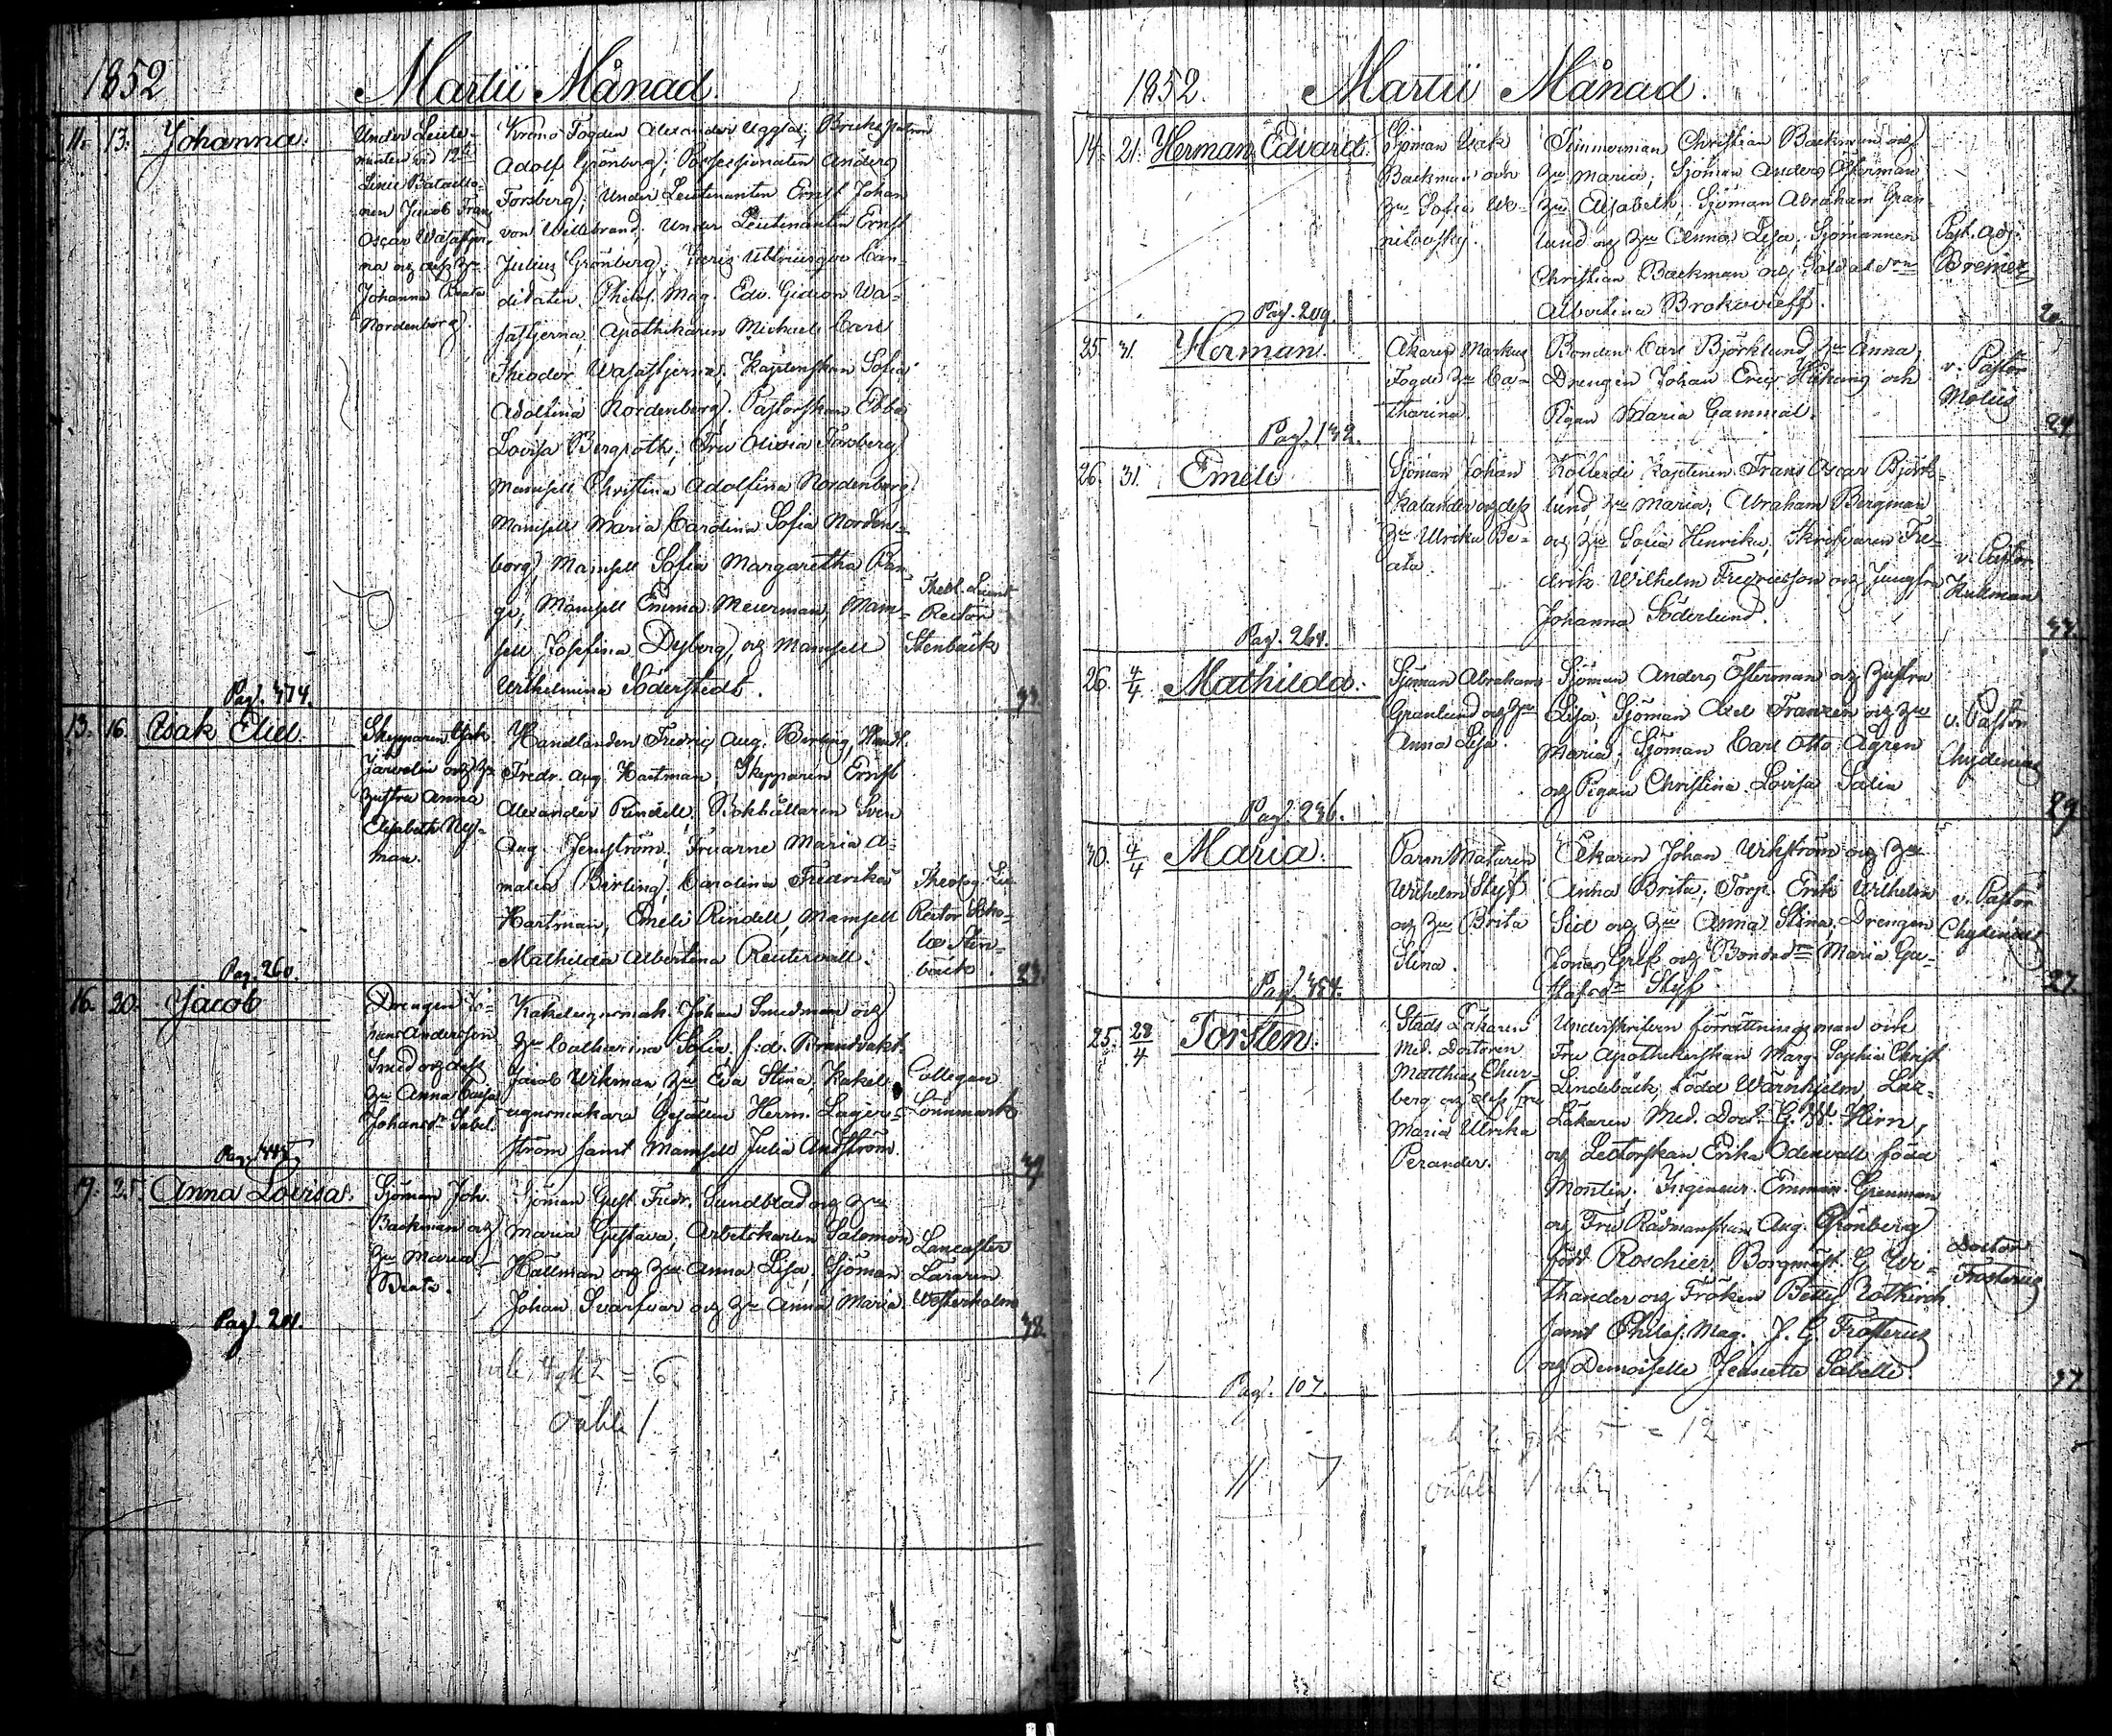 1852 Martii Månad.
11. 13. Johanna.
Under Leute-
nanten vid 12te
Linie Bataillo-
nen Jacob Frans
Oscar Wasastjer-
na och dess Hu
Johanna Beata
Nordenborg.
Krono Fogden Alexander Uggla; Bruks patron
Adolf Grönberg; Possessionaten Anders
Forsberg; Under Leutenanten Ernst Johan
von Willebrand; Under Leutenanten Ernst
Julius Grönberg; Juris Utriusque Can-
didaten Philos. Mag. Edv. Gideon Wa-
sastjerna, Apothekaren Michael Carl
Theodor Wasastjerna; Kaptenskan Sofia
Adolfina Nordenborg; Pastorskan Ebba
Lovisa Bergroth; Fru Olivia Forsberg
Mamsell Christina Adolfina Nordenborg
Mamsell Maria Carolina Sofia Norden-
borg, Mamsell Sofia Margaretha
Mamsell Emma Meurman, Mam-
sell Josefina Dyberg, och Mamsell
Wilhelmina Söderstedt.
Rector
Stenbäck
Pag. 374.
13. 16. Isak Eliel.
Skepparen Isak
Järvelin och
hustru Anna
Elisabeth Ny-
man.
Handlanden Fredric Aug. Berling, Handl.
Fredr. Aug. Hartman, Skepparen Ernst
Alexander Rindell, Bokhållaren Sven
Aug. Jernström, Fruarne Maria A-
malia Berling, Carolina Fredrika
Hartman, Emeli Rindell, Mamsell
Mathilda Albertina Reutervall.
Theolog.
Rector Scho-
lae Sten-
bäck.
Pag. 260.
16. 20. Jacob
Drengen Jo-
hans Andersson
Smed och dess
Hu Anna Caisa
Johansdr Sabel.
Kakelugnsmak. Johan Smedman och
Hu Catharina Sofia, f.d. Brandvakt.
Jacob Wikman, Hu Eva Stina, Kakel-
ugnsmakare Gesällen Herm. Lager-
ström samt Mamsell Julia Andström.
Collegan
Lönnmark
19. 25. Anna Lovisa.
Sjöman Joh.
Backman och
Hu Maria
Beata.
Sjöman Gust. Fredr. Sundblad och Hu
Maria Gustava, Arbetskarlen Salomon
Hällman och Hu Anna Lisa, Sjöman
Johan Svarfvar och Hu Anna Maria.
Lancaster
Läraren
Westerholm
Pag. 201.
38.
1852. Martii Månad.
14. 21. Herman Edvard.
Sjöman Isak
Backman och
Hu Sofia We-
nitovsky.
Timmerman Christian Backman och
Hu Maria; Sjöman Anders Österman
Hu Elisabeth, Sjöman Abraham Gran-
lund och Hu Anna Lisa, Sjömannen
Christian Backman och Soldatdrn
Albertina Brokovieff.
Past. Adj.
Bremer
Pag. 209.
25. 31. Herman.
Åkaren Markus
Fogde Hu Ca-
tharina.
Bonden Carl Björklund, Hu Anna,
Drengen Johan Eric och
Pigan Maria Gammal.
v. Pastor
Pag. 132.
26. 31. Emeli
Sjöman Johan
Kalander och dess
Hu Ulrika Be-
ata.
Kofferdi Kaptenen Frans Oscar Björk-
lund, Hu Maria; Abraham Bergman
och Hu Sofia Henrika, Skrifvaren Fre-
drik Wilhelm Fredricsson och Jungfru
Johanna Söderlund.
v. Pastor
Pag. 264.
26. 4/4 Mathilda.
Sjöman Abraham
Granlund och Hu
Anna Lisa.
Sjöman Anders Österman och hustru
Lisa, Sjöman Axel Franzén och Hu
Maria, Sjöman Carl Otto Ågren
och Pigan Christina Lovisa Salin
v. Pastor
Chydenius
Pag. 236.
29.
30. 4/4 Maria.
Wilhelm Styf
och Hu Brita
Stina.
Johan Wikström och Hu
Anna Brita, Torp. Erik Wilhelm
Sid och Hu Anna Stina, Drengen
Jonas Gref och Bondedrn Maria Gu-
stafsdr Styf
v. Pastor
Chydenius
Pag. 384.
27.
25. 28/4 Torsten.
Stads Läkaren
Med. Doctoren
Matthias Chur-
berg och dess Fru
Maria Ulrika
Perander.
Underskrifven förrättningsman och
Fru Apothekerskan Marg. Sophia Christ.
Lindebäck, född Wärnhjelm, Läz-
Läkaren Med. Doct. G. W. Hirn,
och Lectorskan Erika Odenwall född
Montin, Ingenieur Emman. Grenman
och Fru Rådmanskan Aug. Grönberg
född Roschier, Borgmäst. G. Wi-
thander och Fröken Betty Rotkirch
samt Philos. Mag. J. G. Frosterus
och Demoiselle Jeanette Sabelli.
Doctor
Frosterus
Pag. 107.
37.